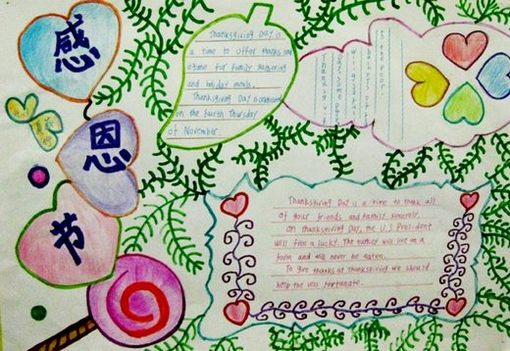 感
恩
节
Thanksgiving Day is
a time to offer thanks, and
a time for family gathering
and holiday meals.
Thanksgiving Day is
on the fourth Thursday
of November.
Thanksgiving Day is a time to thank all
of your friends and family sincerely.
On thanksgiving Day, the U.S President
will free a lucky. The turkey will live on a
farm and will never be eaten.
To give thanks at thanksgiving we should
help the less fortunate.